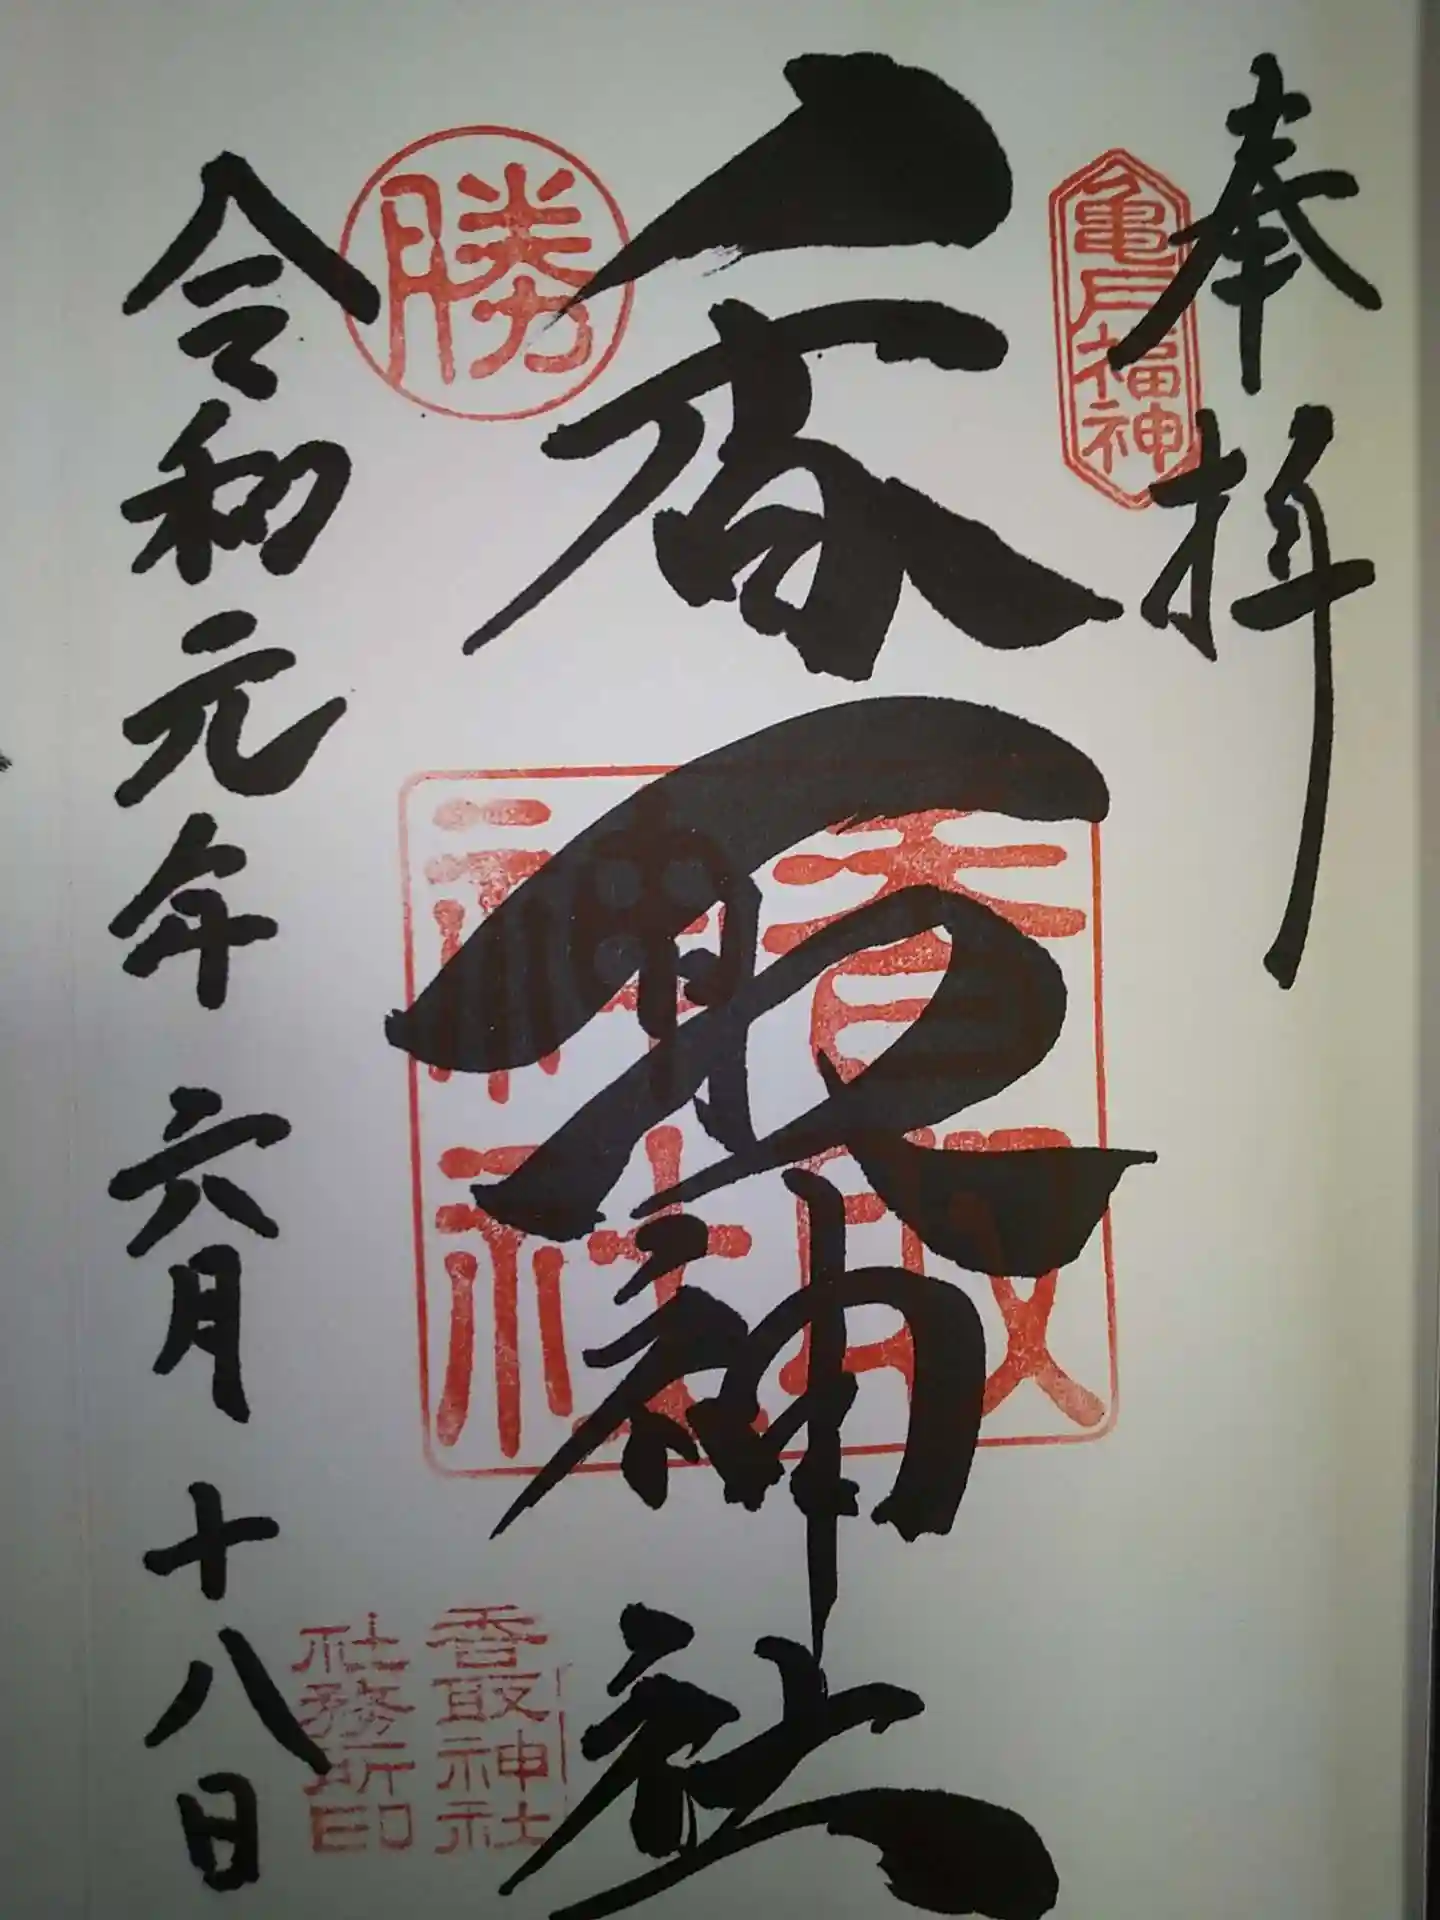 奉拝
亀戸福神
香取神社
勝
香取
神社
香取神社
社務所印
令和元年六月十八日